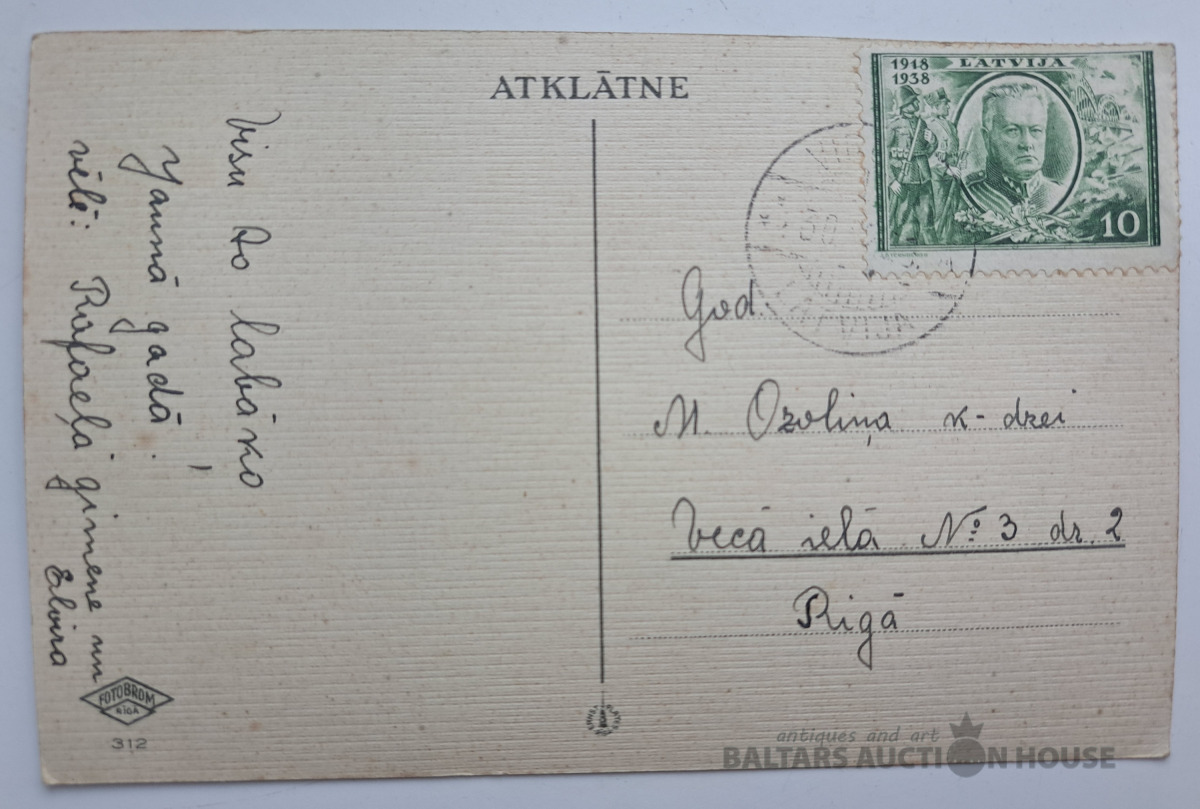 ATKLĀTNE
1918 LATVIJA
1938
10
Visu to labāko
Jaunā gadā!
vēlē: Rafaeļa ģimene un
Elvira
God.
M. Ozoliņa k-dzei
Vecā ielā № 3 dz. 2
Rīgā
LATVIJA
FOTOBROM
RĪGĀ
312
antiques and art
BALTARS AUCTION HOUSE